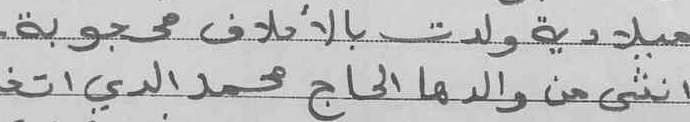 ميلادية ولدت بالأملاف محجوبة.
انثى من والدها الحاج محمد الدي اتخ